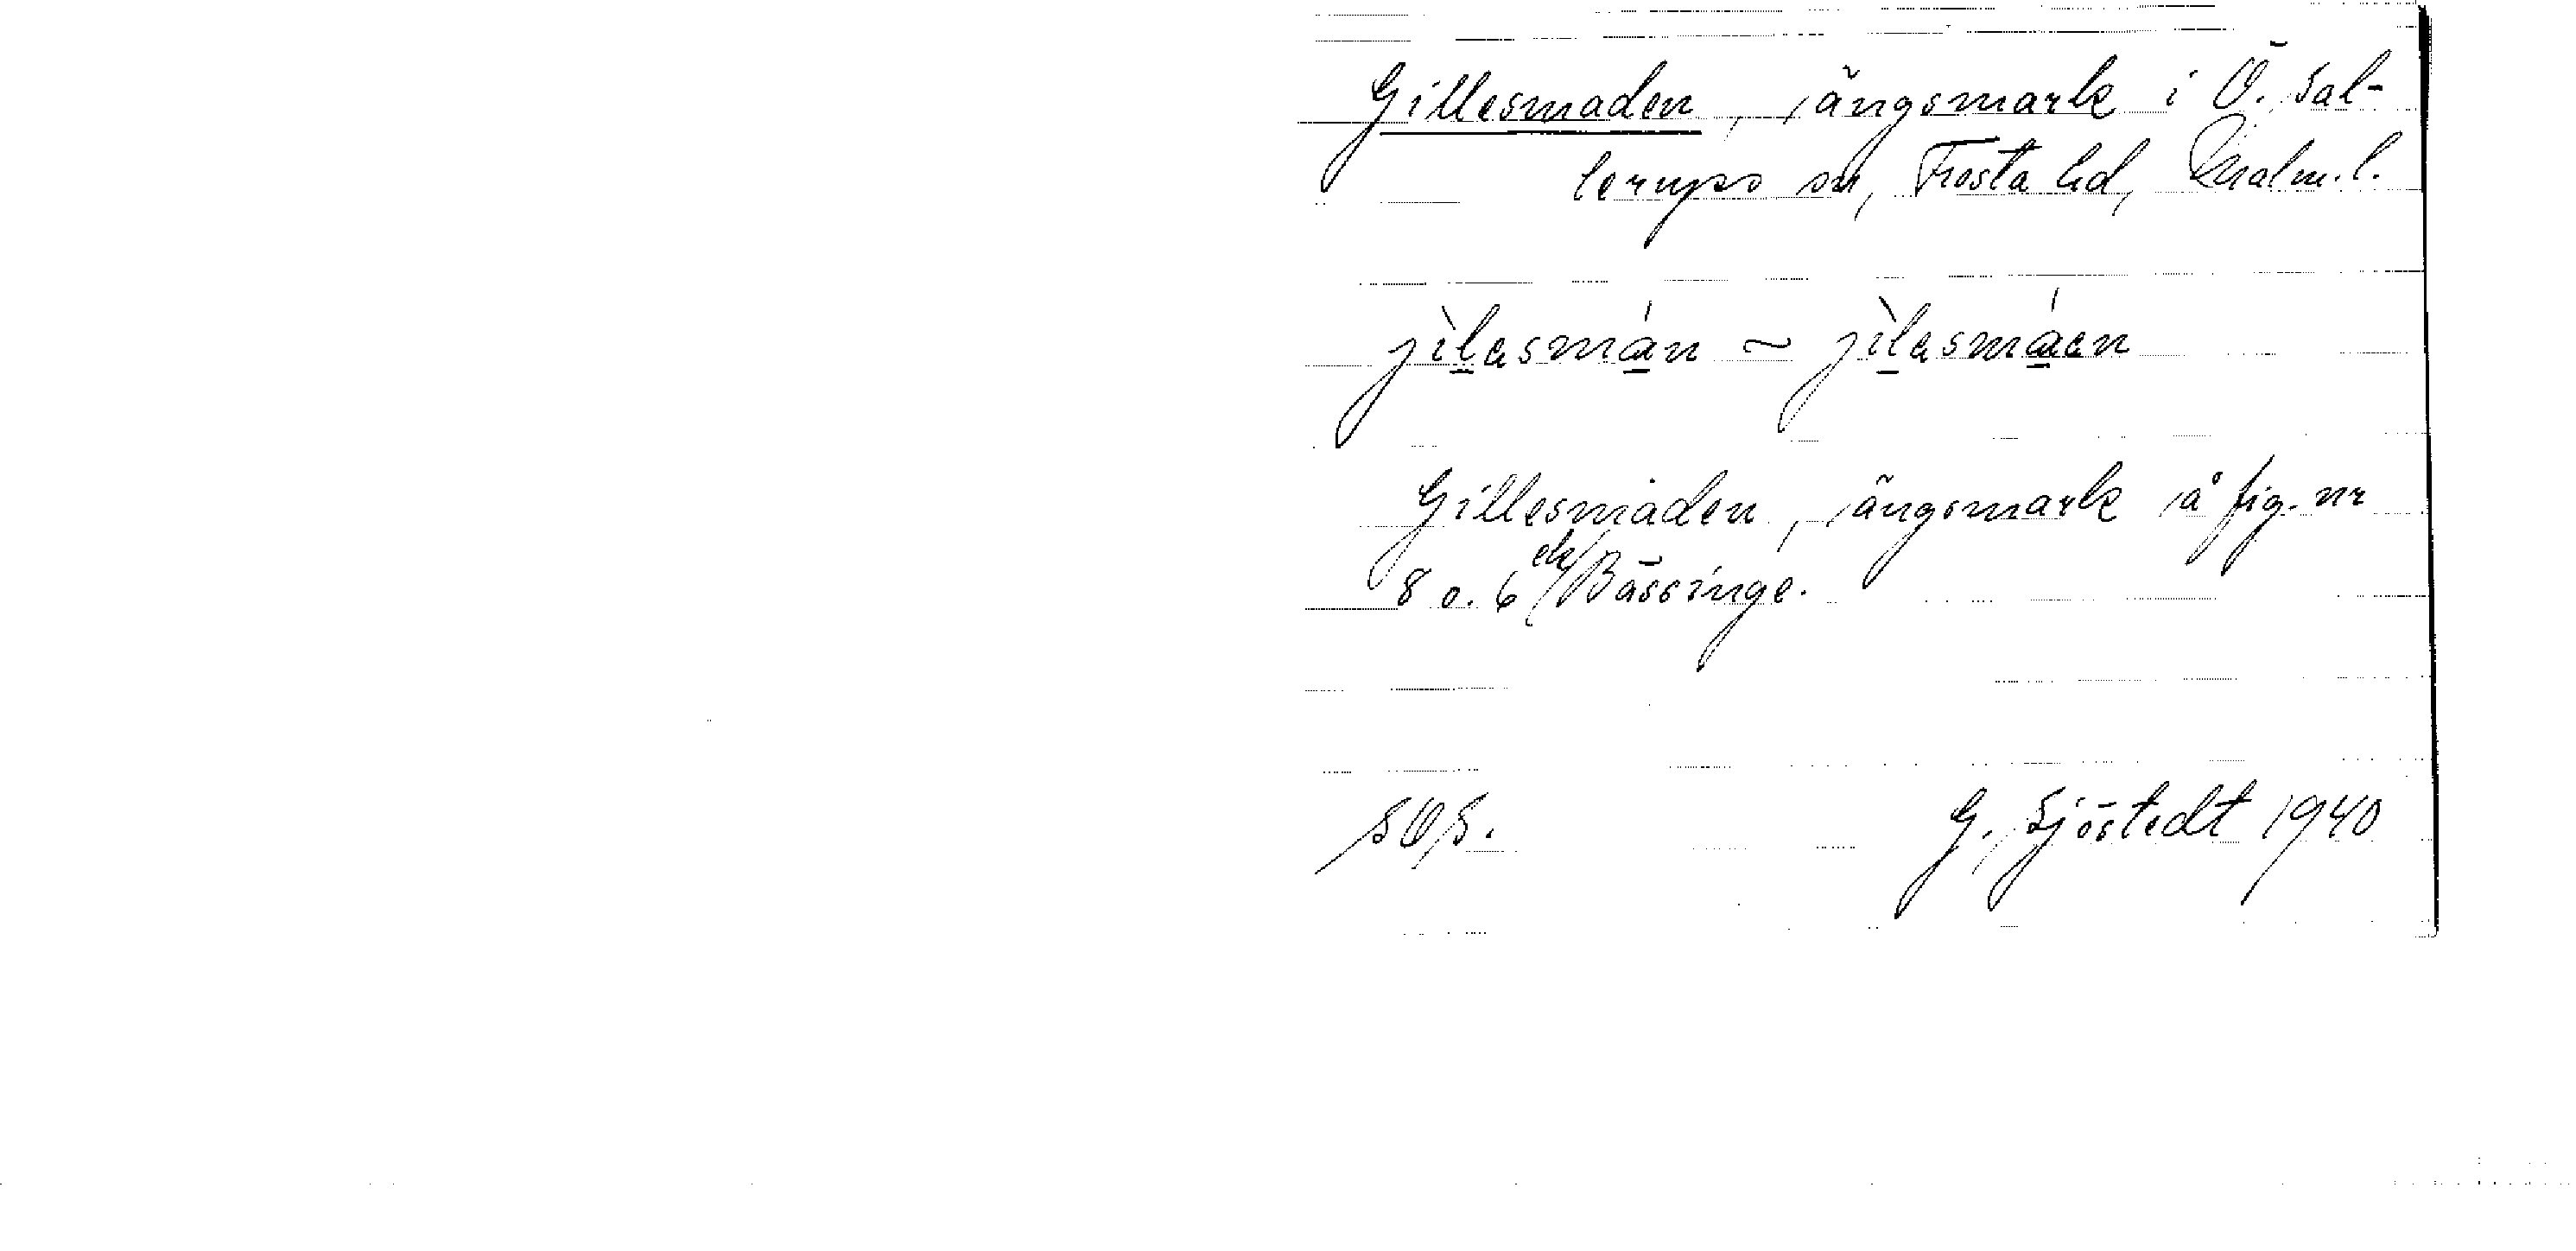 Gillesmaden, ängsmark i Ö. Sal-
lerups sn, Frosta hd, Malm. l.
jìlasmán ~ jìlasmáan
Gillesmaden, ängsmark å fig. nr
8 o. 6 Bässinge.
G. Sjöstedt 1940